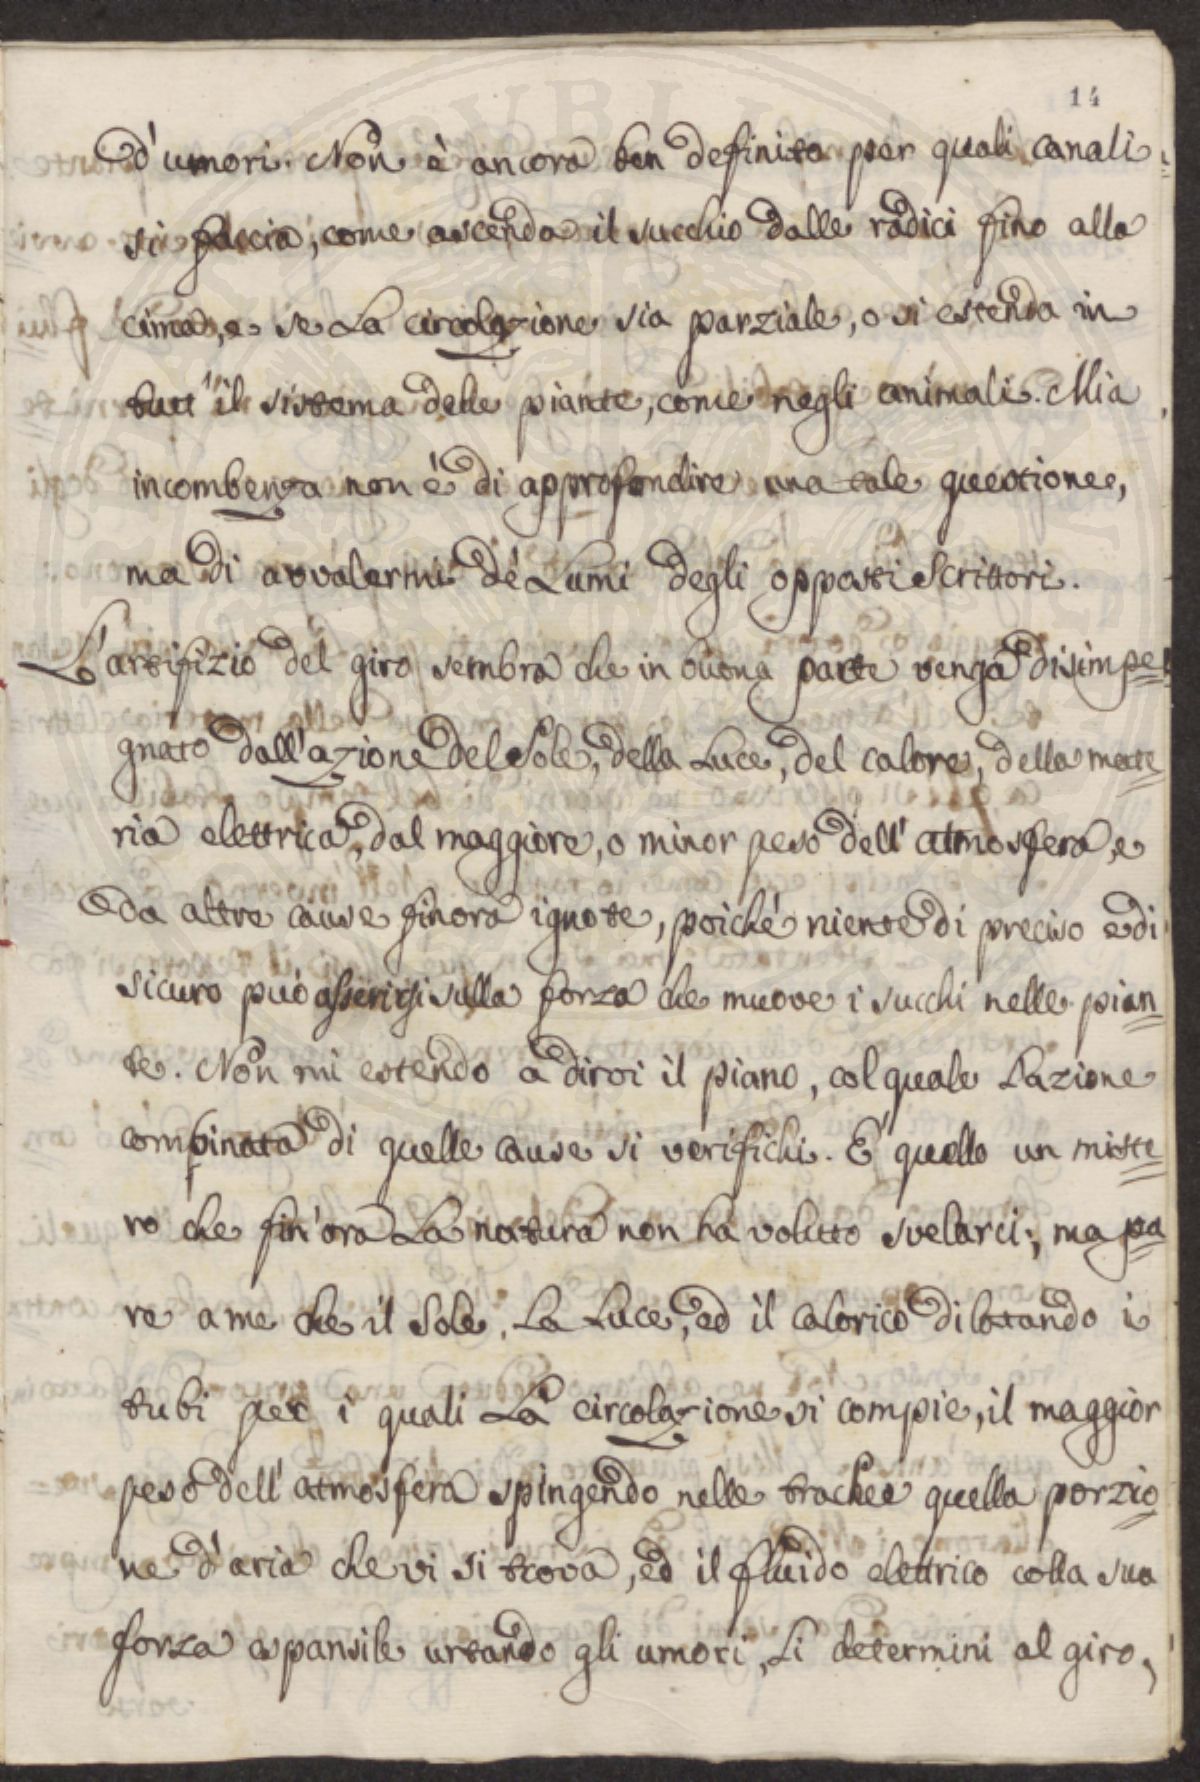 14
d'umori. Non è ancora ben definito per quali canali
si faccia, come ascenda il succhio dalle radici fino alla
cima, e se La circolazione sia parziale, o si estenda in
tutt'il sistema delle piante, come negli animali. Mia
incombenza non è di approfondire una tale questione,
ma di avvalermi de' Lumi degli opposti Scrittori.
L'artifizio del giro sembra che in buona parte venga disimpe=
gnato dall'azione del Sole, della Luce, del calore, della mate=
ria elettrica, dal maggiore, o minor peso dell'atmosfera, e
da altre cause finora ignote, poiché niente di preciso e di
sicuro può asserirsi sulla forza che muove i succhi nelle pian=
te. Non mi estendo a dirvi il piano, col quale L'azione
combinata di quelle cause si verifichi. E' quello un miste=
ro che fin'ora La natura non ha voluto svelarci; ma pa=
re a me che il Sole, La Luce, ed il calorico dilatando i
tubi per i quali La circolazione si compie, il maggior
peso dell'atmosfera spingendo nelle trachee quella porzio=
ne d'aria che vi si trova, ed il fluido elettrico colla sua
forza espansile urtando gli umori, Li determini al giro,